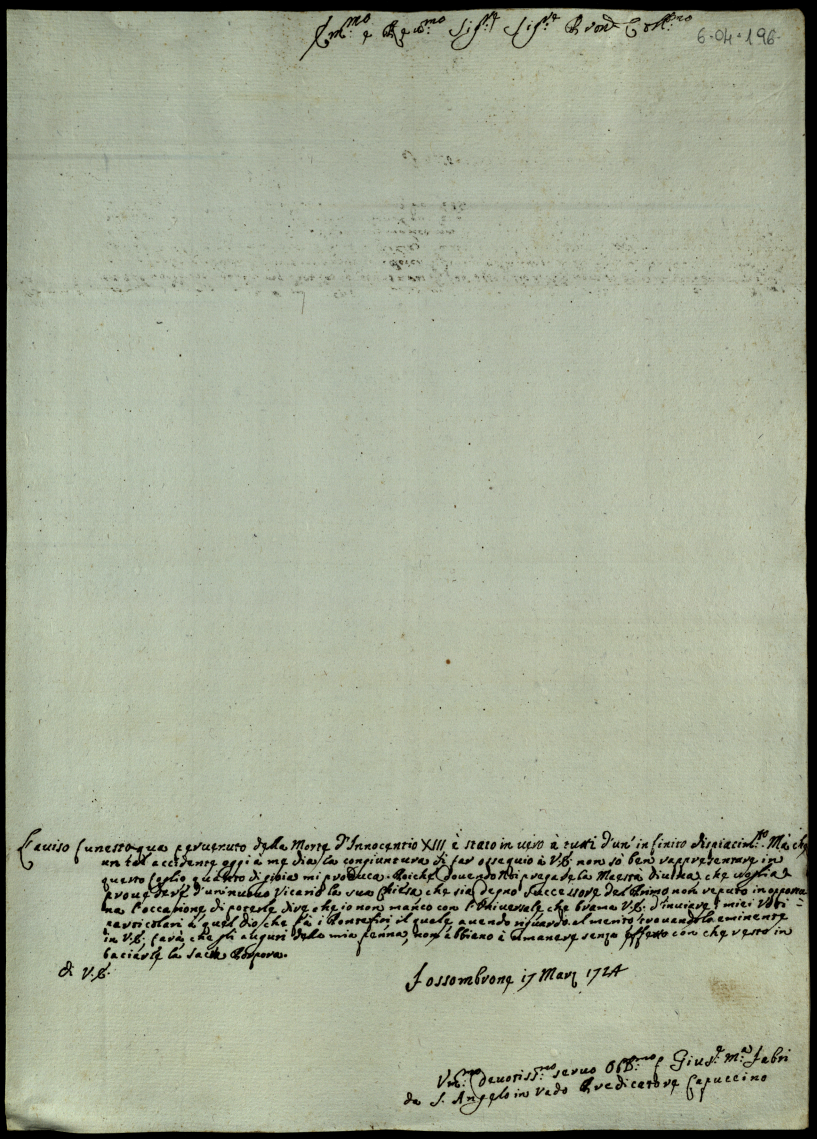 Em.mo e Rev.mo Sig.re Sig.re P'ron Coll.mo
6-04-196-
L'aviso funesto qua pervenuto della Morte d'Innocentio XIII è stato in vero à tutti d'un' infinito dispiacim.to. Mà che
un tal accidente oggi à me dia la congiuntura di far ossequio à V.E. non sò ben rappresentare in
questo foglio quanto di gioia mi produca. Poiche dovendo Noi pregare la Maestà Divina che voglia
provedere d'un nuovo Vicario la sua Chiesa che sia degno successore del Primo non reputo inopportu
na l'occasione di poterle dire che io non manco con l'Universale che brama V.E. d'inviare i miei Voti
particolari à quel Dio che fà i Pontefici il quale avendo riguardo al merito trovandolo eminente
in V.E. farà, che gli auguri della mia penna, non abbiano à rimanere senza effetto con che resto in
baciarle la Sacra Porpora.
di V.E.
Fossombrone 17 Marz 1724
Um.mo Devotiss.mo servo Obb.mo F Gius.e M.a Fabri
da S. Angelo in Vado Predicatore Capuccino